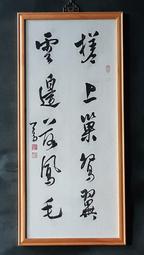 槎上巢鴛翼
雲邊落鳳毛